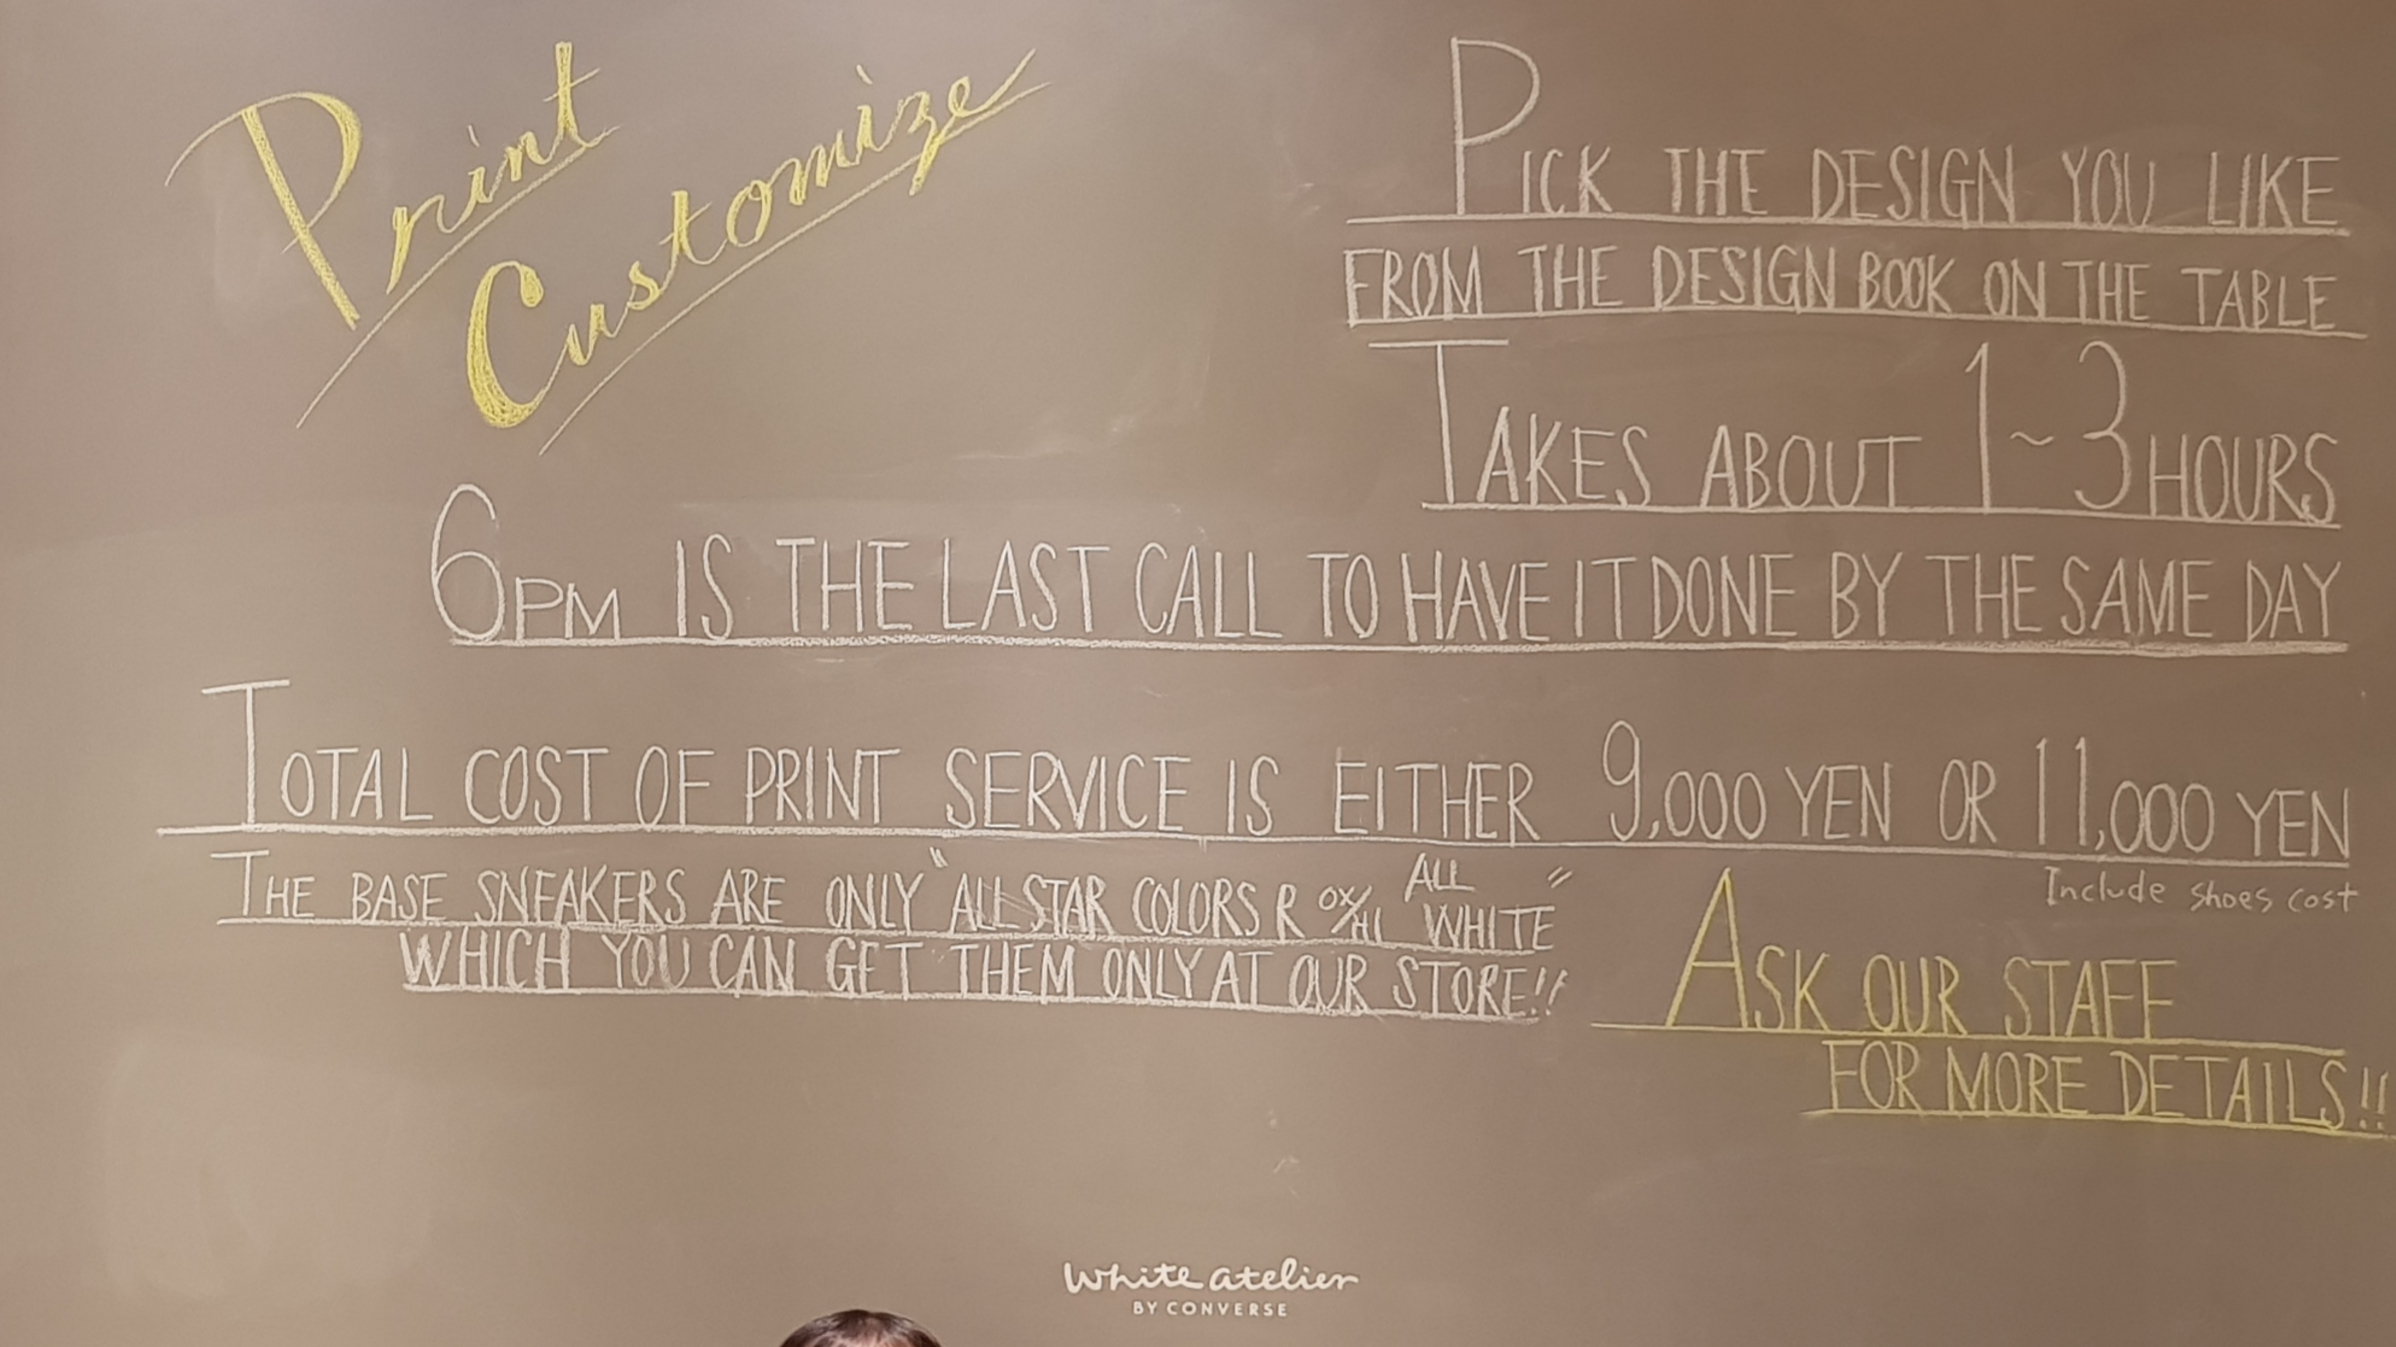 Print
Customize
PICK THE DESIGN YOU LIKE
FROM THE DESIGN BOOK ON THE TABLE
TAKES ABOUT 1~3 HOURS
6PM IS THE LAST CALL TO HAVE IT DONE BY THE SAME DAY
TOTAL COST OF PRINT SERVICE IS EITHER 9,000 YEN OR 11,000 YEN
Include shoes cost
THE BASE SNEAKERS ARE ONLY "ALL STAR COLORS R OX/HI ALL WHITE"
WHICH YOU CAN GET THEM ONLY AT OUR STORE!!
ASK OUR STAFF
FOR MORE DETAILS!!
White atelier
BY CONVERSE